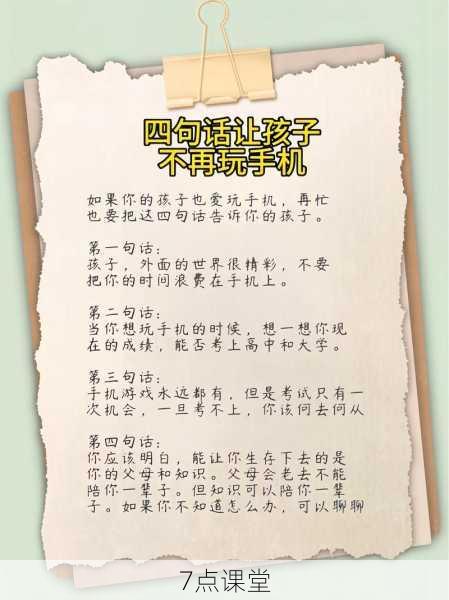 四句话让孩子
不再玩手机
如果你的孩子也爱玩手机，再忙
也要把这四句话告诉你的孩子。
第一句话：
孩子，外面的世界很精彩，不要
把你的时间浪费在手机上。
第二句话：
当你想玩手机的时候，想一想你现
在的成绩，能否考上高中和大学。
第三句话：
手机游戏永远都有，但是考试只有一
次机会，一旦考不上，你该何去何从
第四句话：
你应该明白，能让你生存下去的是
你的父母和知识。父母会老去不能
陪你一辈子。但知识可以陪你一辈
子。如果你不知道怎么办，可以聊聊
7点课堂